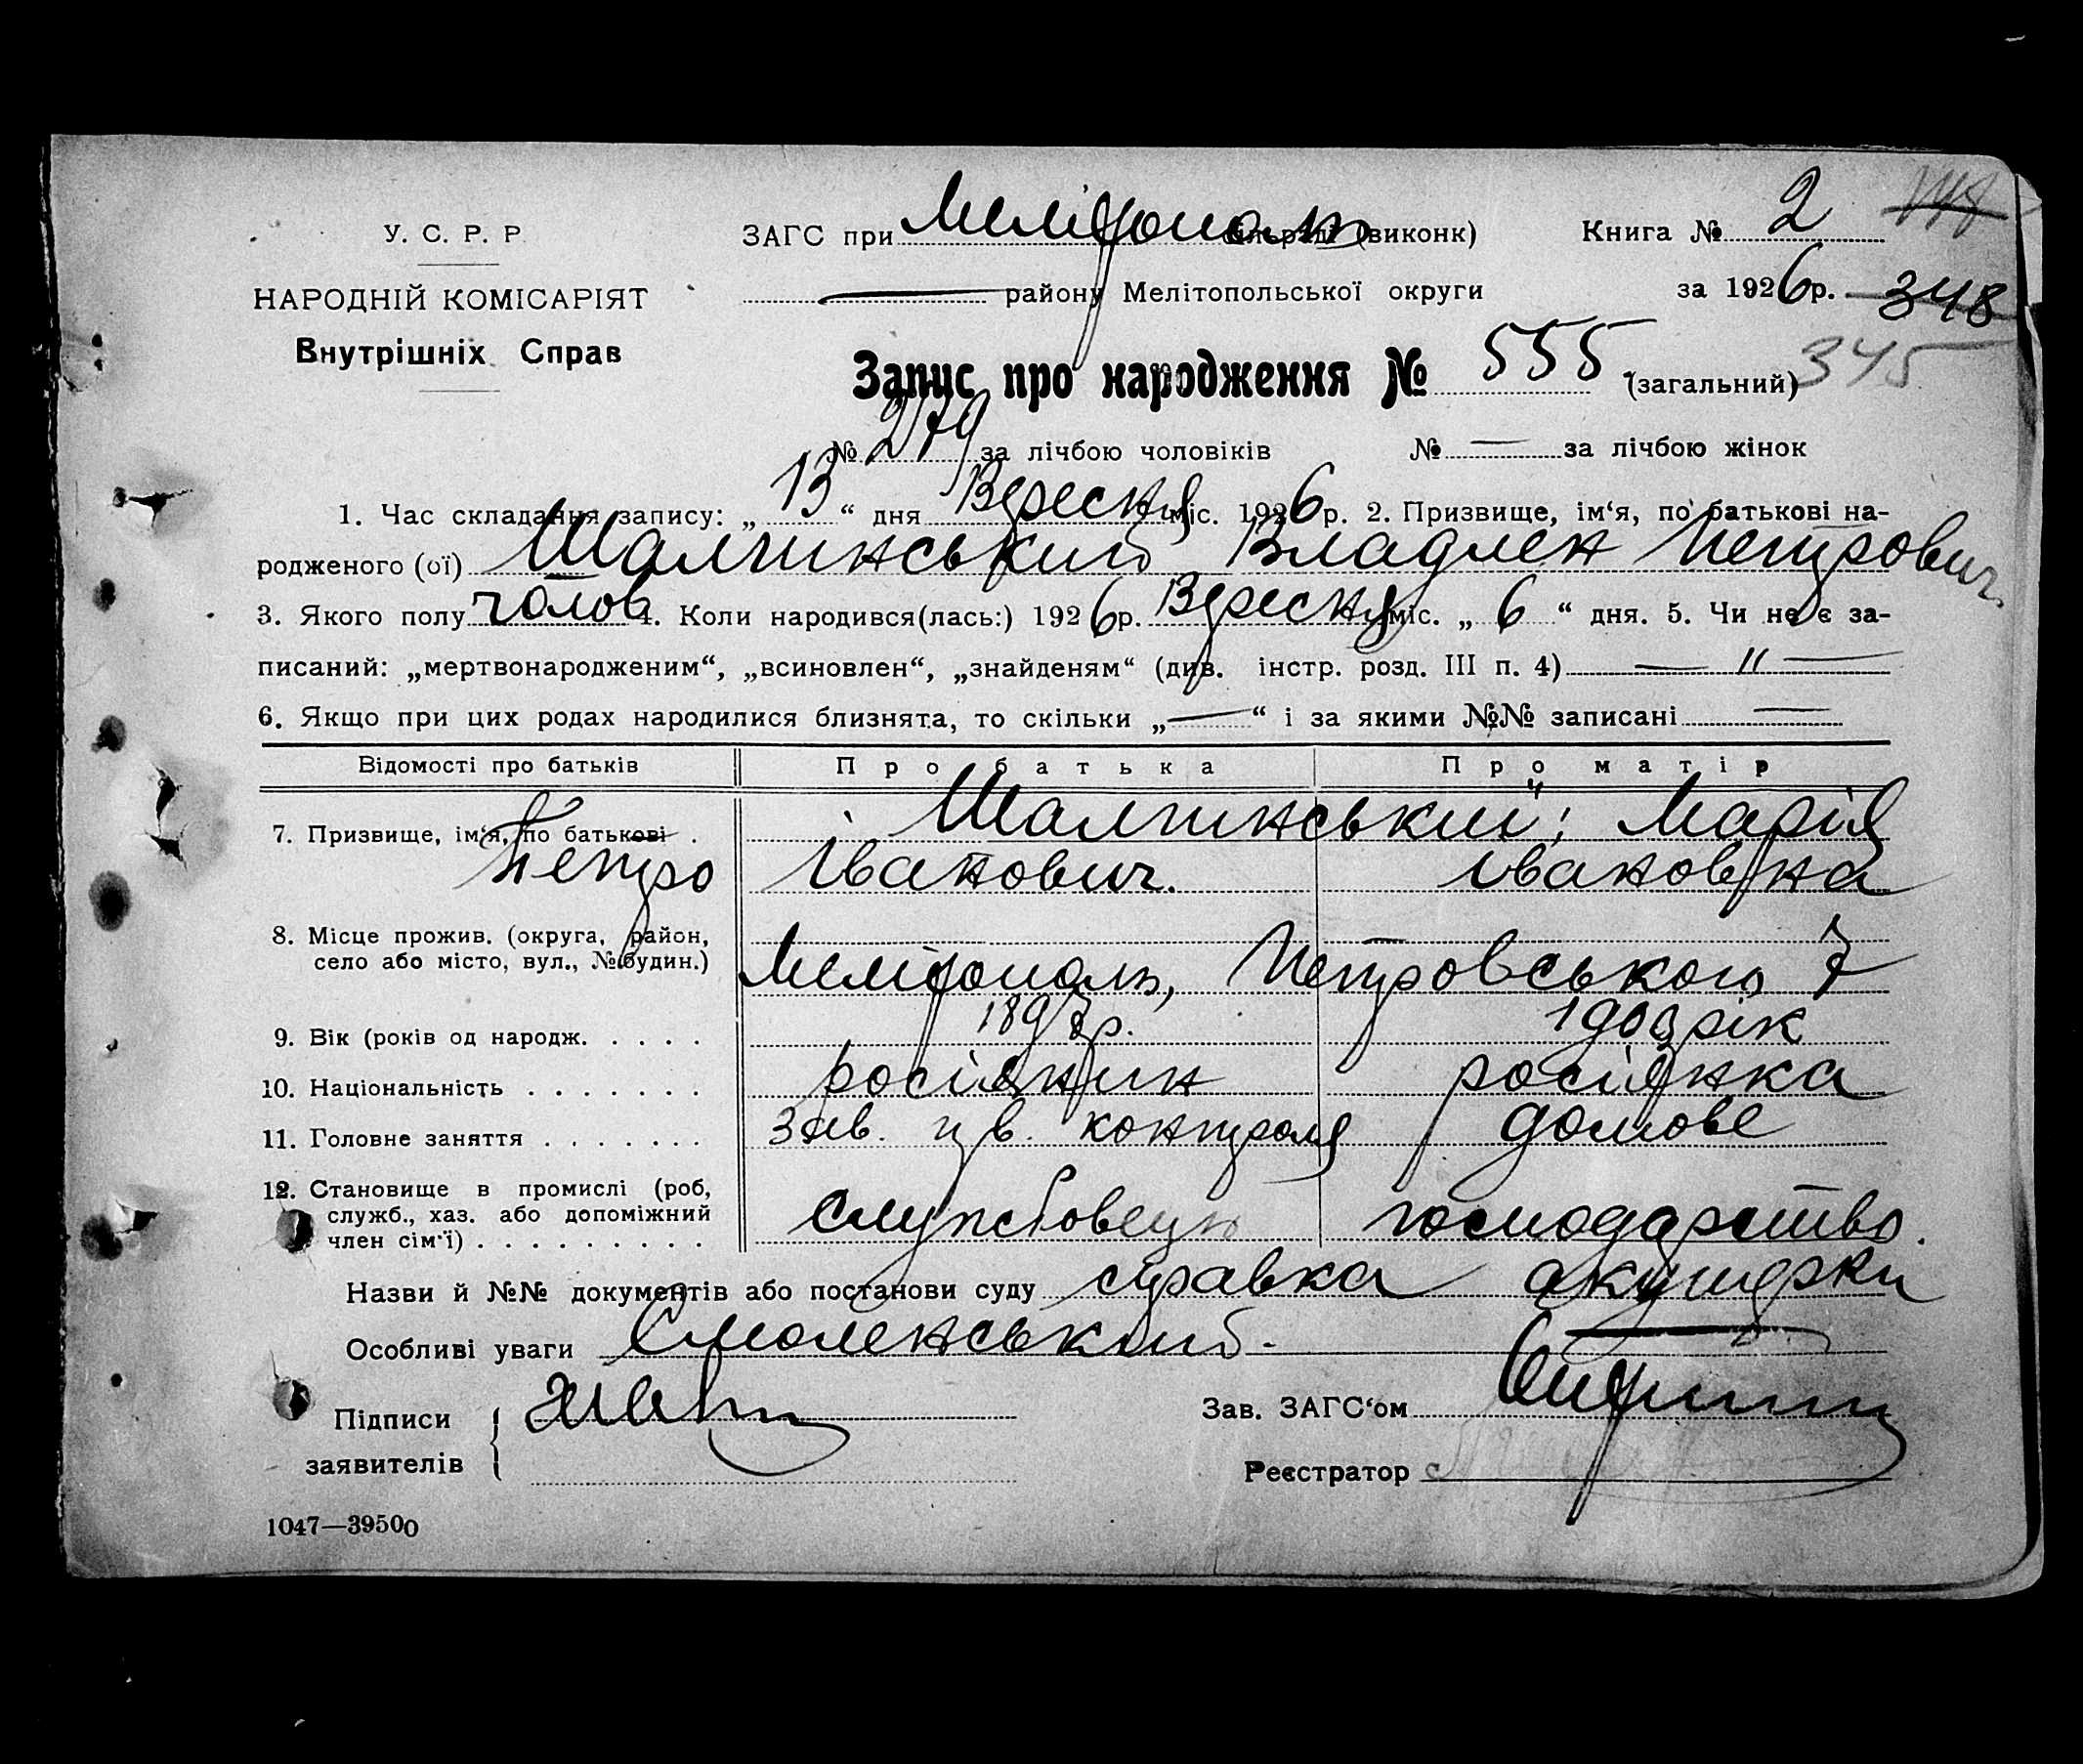 У. С. Р. Р
НАРОДНІЙ КОМІСАРІЯТ
Внутрішніх Справ
ЗАГС при Мелітополь сільраді (виконк)
Книга № 2
району Мелітопольської округи
за 1926 р. 348
Запис про народження № 555 (загальний) 345
№ 279 за лічбою чоловіків № — за лічбою жінок
1. Час складання запису: „ 13 “ дня Вересня міс. 1926 р. 2. Призвище, ім‘я, по батькові на-
родженого (ої) Шалгинський Владлен Петрович
3. Якого полу чолов 4. Коли народився(лась:) 1926 р. Вересня міс. „ 6 “ дня. 5. Чи не є за-
писаний: „мертвонародженим“, „всиновлен“, „знайденям“ (див. інстр. розд. III п. 4) — " —
6. Якщо при цих родах народилися близнята, то скільки „ — “ і за якими №№ записані —
Відомості про батьків Про батька Про матір
7. Призвище, ім‘я, по батькові . Шалгинський; Марія
Петро Іванович. Івановна
8. Місце прожив. (округа, район,
село або місто, вул., № будин.) Мелітополь, Петровського 7
9. Вік (років од народж. . . . . 1897 р. 1903 рік
10. Національність . . . . . . . росіянин росіянка
11. Головне заняття . . . . . . . Зав. цв. контроля домове
12. Становище в промислі (роб,
служб., хаз. або допоміжний
член сім‘ї) . . . . . . . . . службовець господарство.
Назви й №№ документів або постанови суду справка акушерки
Особливі уваги Смоленський.
Підписи
заявителів
Зав. ЗАГС‘ом
Реєстратор
1047—39500